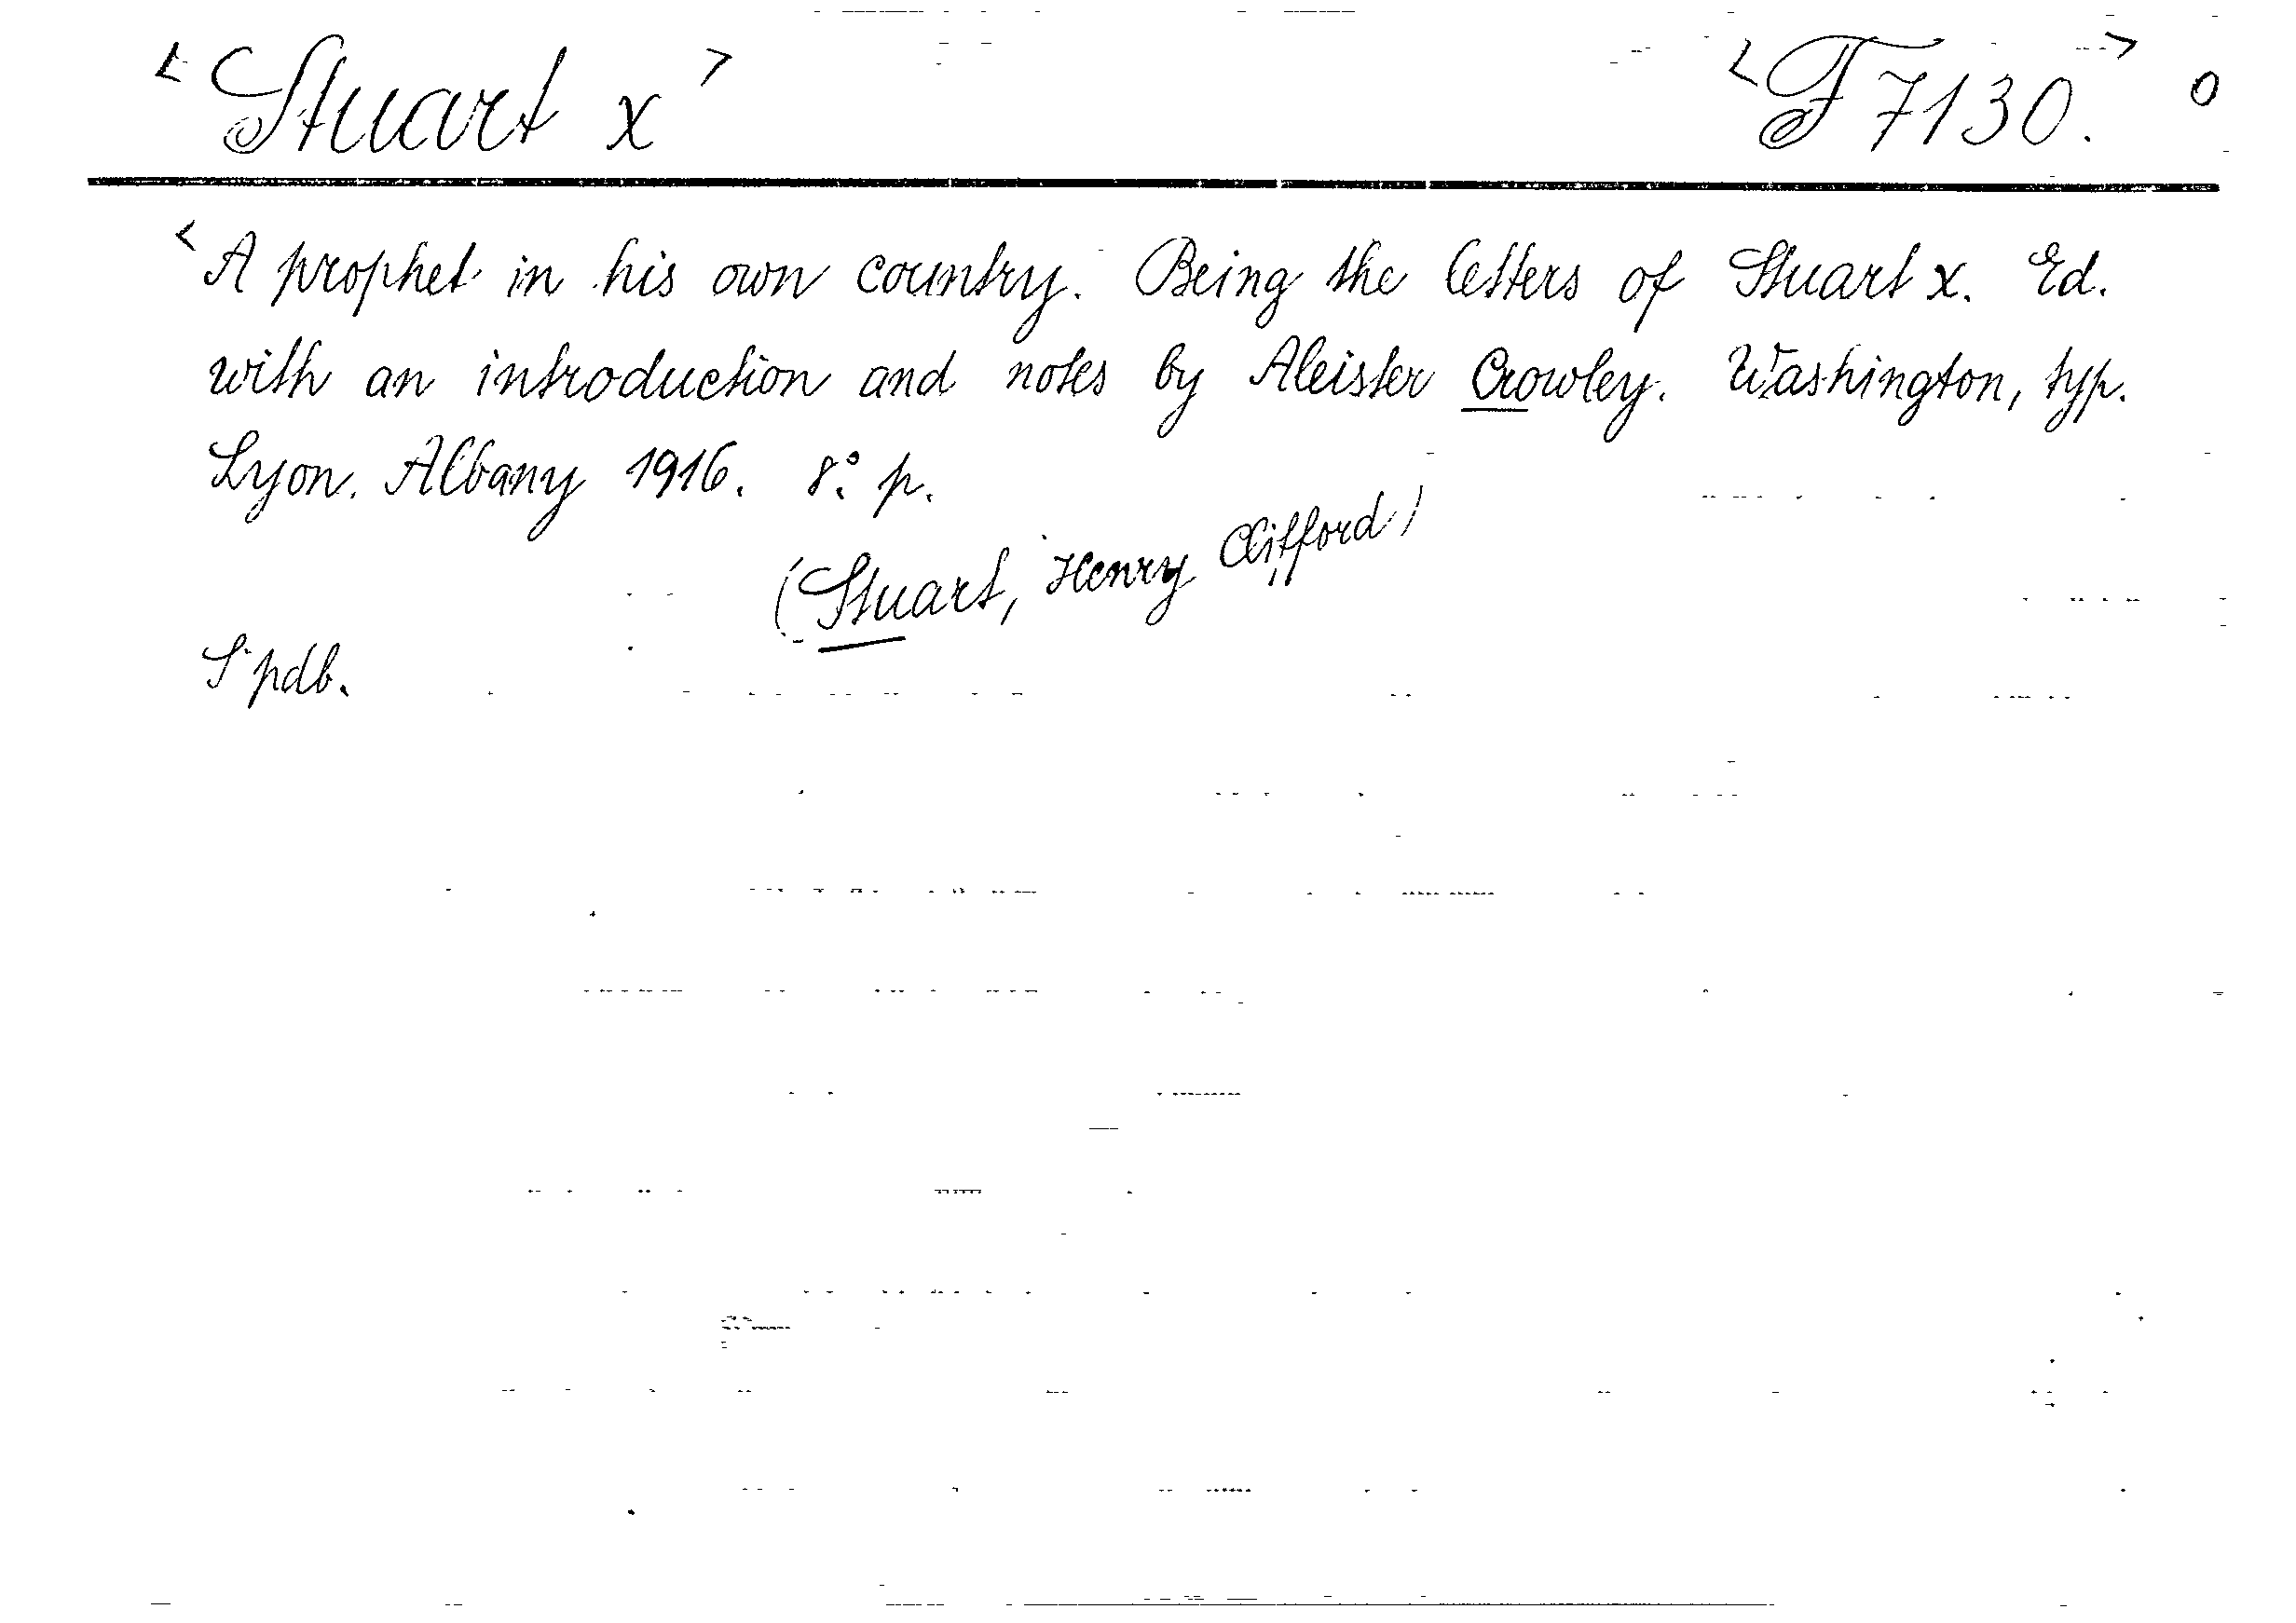 <Stuart x> <F7130.> 0
<A prophet in his own country. Being the letters of Stuart x. Ed.
with an introduction and notes by Aleister Crowley. Washington, typ.
Lyon. Albany 1916. 8.° p.
(Stuart, Henry Clifford)
S pdb.